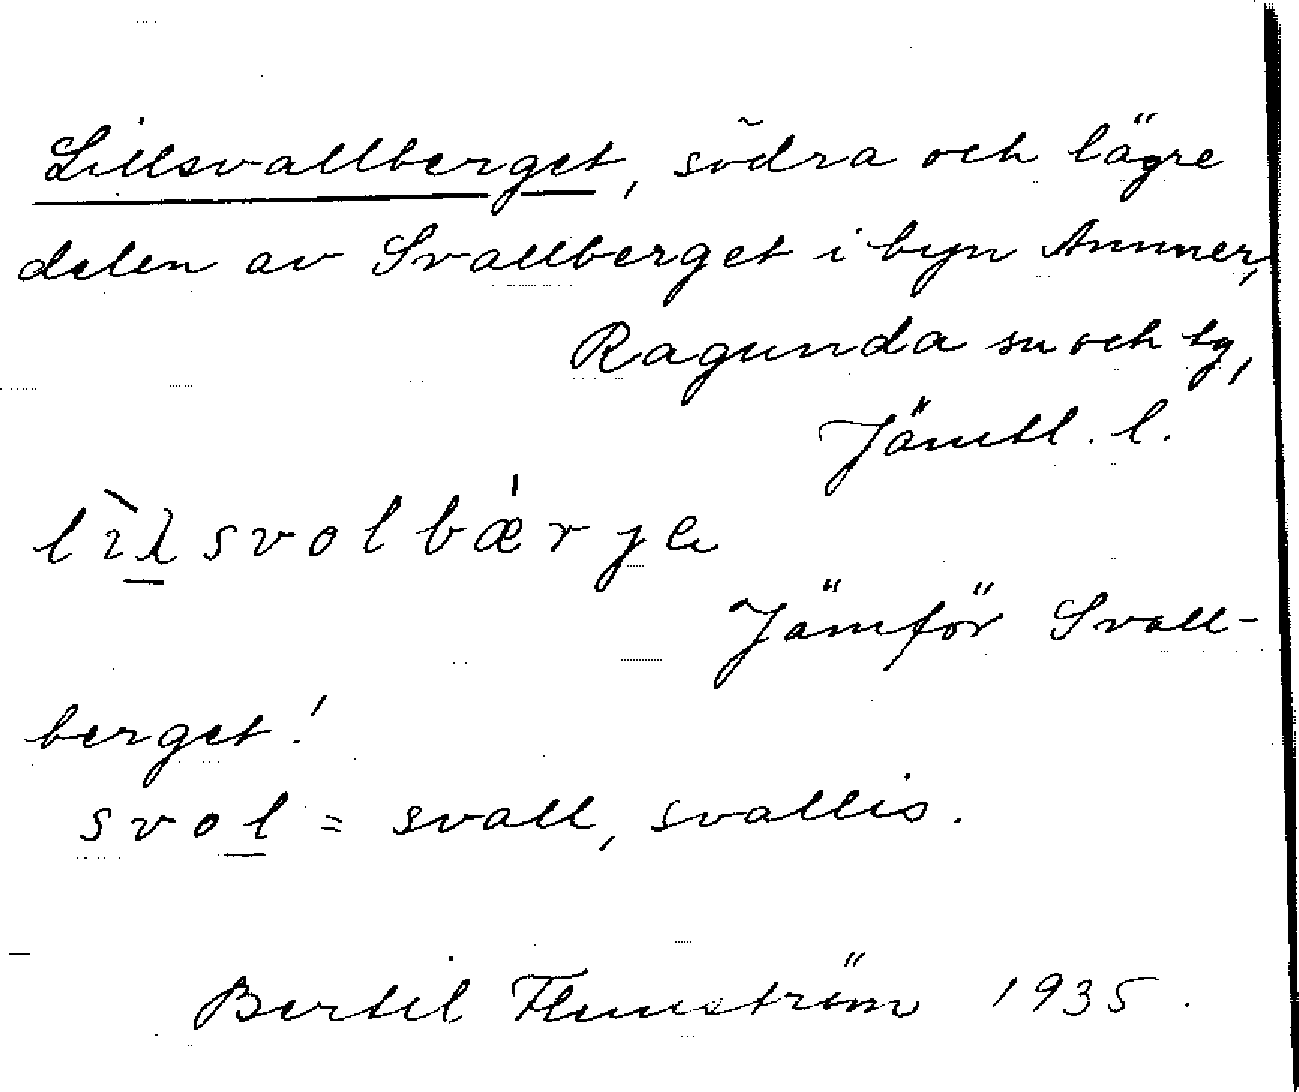 Lillsvallberget, södra och lägre
delen av Svallberget i byn Ammer,
Ragunda sn och tg,
Jämtl. l.
lìlsvolbærje
Jämför Svall-
berget!
svol = svall, svallis.
Bertil Flemström 1935.